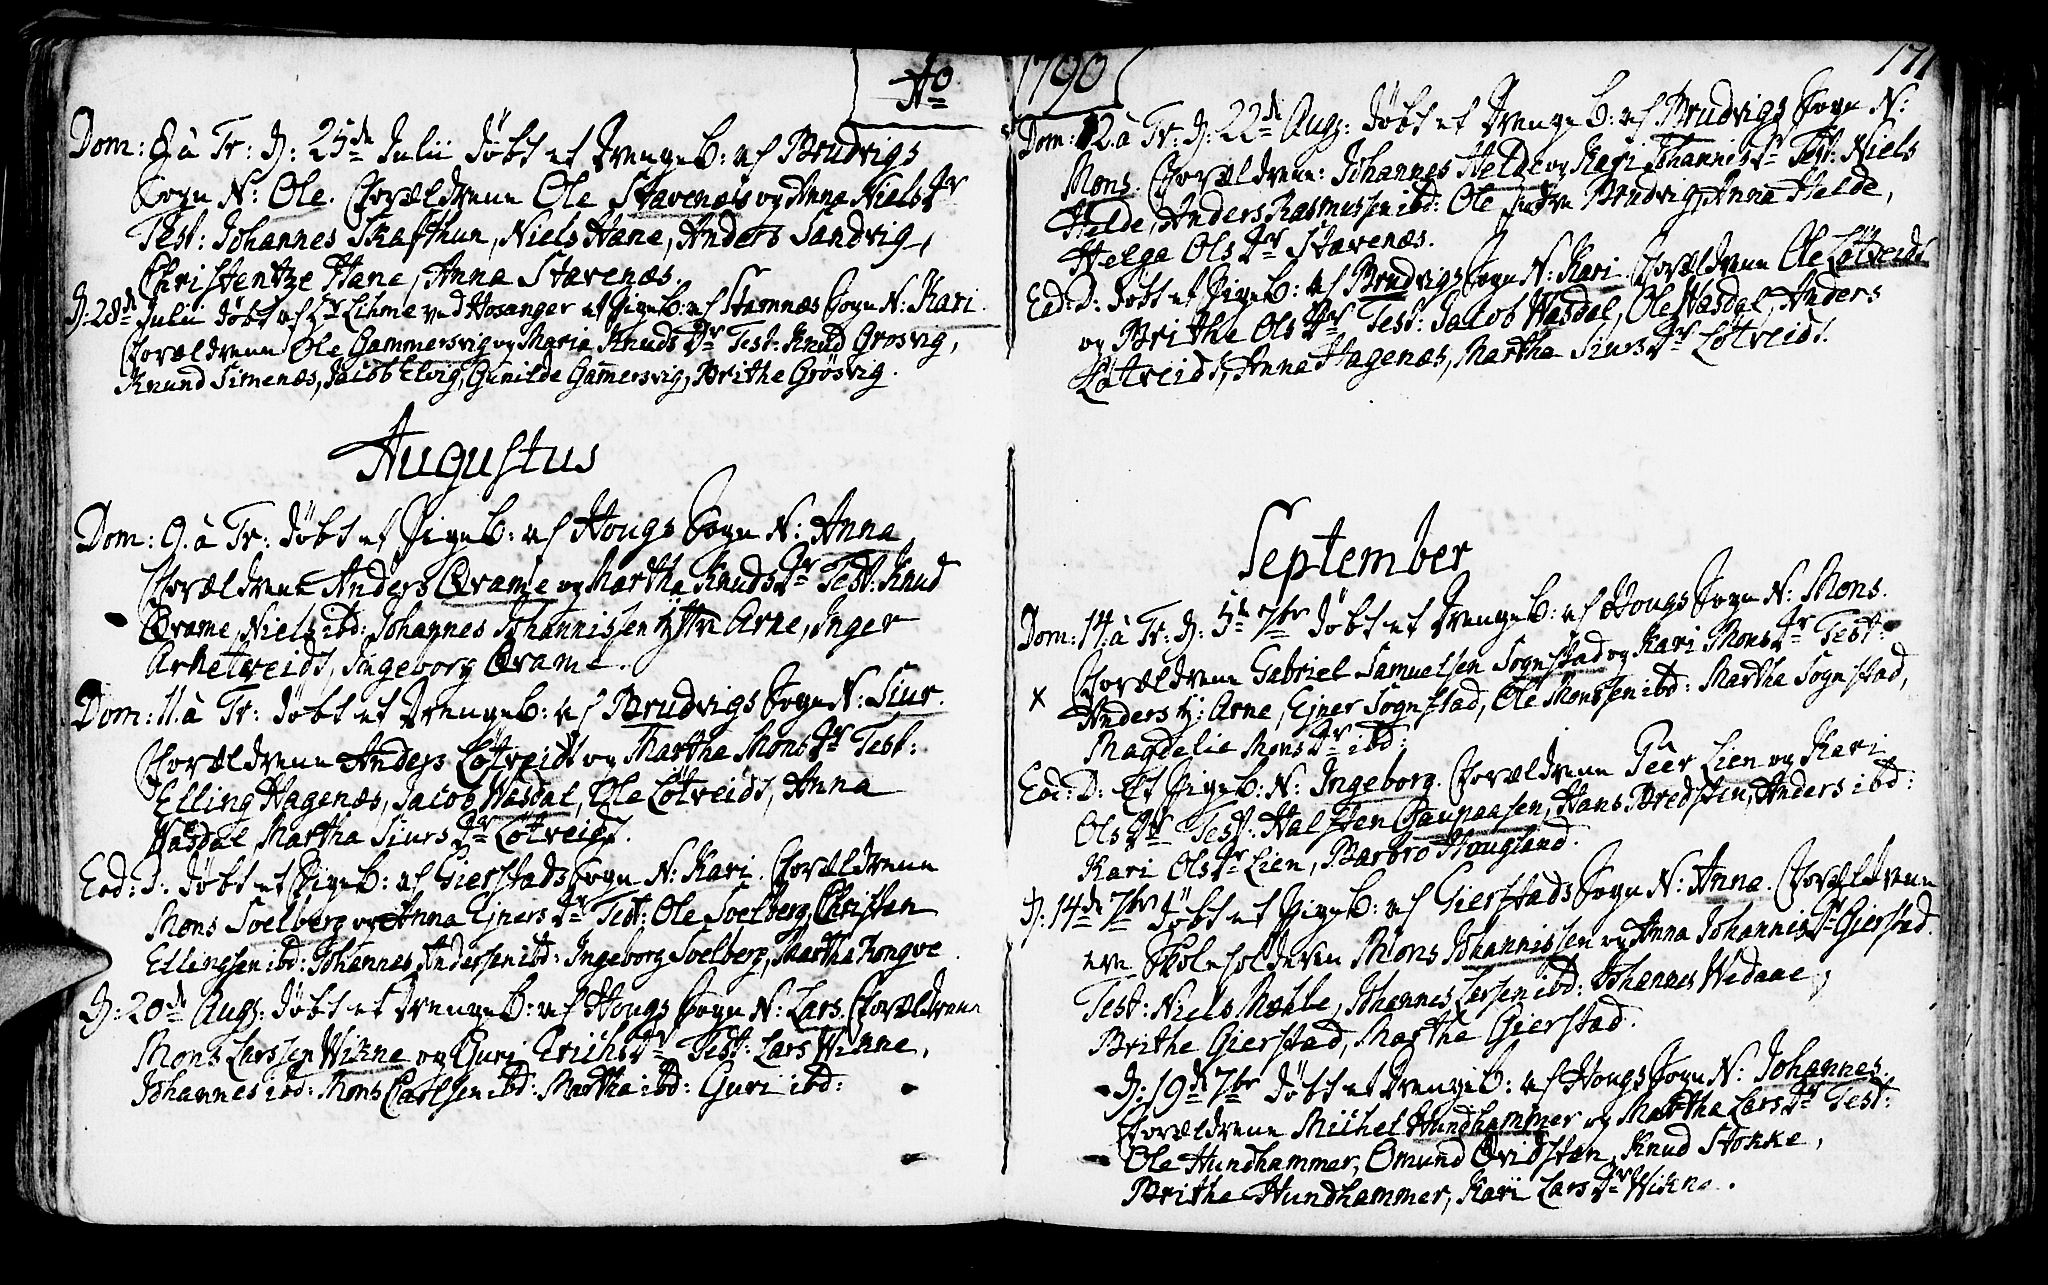 Ao
Dom: 8 à Tr: D: 25de Julii døbt et Drengeb: af Brudvigs
Sogn N: Ole. Forældrene Ole Stavenæs og Anna Niels Dr
Test: Johannes Skafthun, Niels Hane, Anders Sandvig,
Christentze Hane, Anna Stavenæs.
D: 28de Julii døbt af Hr Lihme ved Hosanger et Pigeb: af Stamnæs Sogn N: Kari.
Forældrene Ole Gammersvig og Maria Knuds Dr Test: Knud Grosvig,
Knund Simenæs, Jacob Elvig, Gunilde Gam̄ersvig, Brithe Grøsvig.
Augustus
Dom: 9. à Tr: døbt et Pigeb: af Hougs Sogn N: Anna
Forældrene Anders Qvame og Martha Knuds Dr Test: Knud
Qvame, Niels ibd: Johannes Johannissen yttre Arne, Inger
Arketveidt, Ingeborg Qvame.
Dom: 11. à Tr: døbt et Drengeb: af Brudvigs Sogn N: Siur.
Forældrene Anders Løtveidt og Martha Mons Dr Test:
Elling Hagenæs, Jacob Wasdal, Ole Løtveidt, Anna
Wasdal, Martha Siurs Dr Løtveidt.
Eod: D: døbt et Pigeb: af Gierstads Sogn N: Kari. Forældrene
Mons Soelberg og Anna Ejners Dr Test: Ole Soelberg, Christen
Ellingsen ibd: Johannes Andersen ibd: Ingeborg Soelberg, Martha Tongve.
D: 20de Aug: døbt et Drengeb: af Hougs Sogn N: Lars. Forældrene
Mons Larssen Wikne og Guri Erichs Dr Test: Lars Wikne,
Johannes ibd: Mons Carlsen ibd: Martha ibd: Guri ibd:
1790
171
Dom: 12. à Tr: D: 22de Aug: døbt et Drengeb: af Brudvigs Sogn N:
Mons. Forældrene: Johannes Helde og Kari Johannis Dr Test: Niels
Helde, Anders Rasmussen ibd: Ole indre Brudvig, Anna Helde,
Helga Ols Dr Stavenæs.
Eod: D: døbt et Pigeb: af Brudvigs Sogn N: Kari. Forældrene Ole Løtveidt
og Brithe Ols Dr Test: Jacob Wasdal, Ole Wasdal, Anders
Løtveidt, Anna Hagenæs, Martha Siurs Dr Løtveidt.
September
Dom: 14. à Tr: D: 5de 7br døbt et Drengeb: af Hougs Sogn N: Mons.
Forældrene Gabriel Samuelsen Sognstad og Kari Mons Dr Test:
x Anders y: Arne, Ejner Sognstad, Ole Monssen ibd: Martha Sognstad,
Magdelie Mons Dr ibd:
Eod: D: Et Pigeb: N: Ingeborg. Forældrene Peer Lien og Kari
Ols Dr Test: Halsten Gaupaasen, Hans Bredsten, Anders ibd:
Kari Ols Dr Lien, Barbro Hougland.
D: 14de 7br døbt et Pigeb: af Gierstads Sogn N: Anna. Forældrene
ere Skoleholderen Mons Johannissen og Anna Johannis Dr Gierstad.
Test: Niels Mæhle, Johannes Larsen ibd: Johannes Wedaae,
Brithe Gierstad, Martha Gierstad.
D: 19de 7br døbt et Drengeb: af Hougs Sogn N: Johannes.
Forældrene Michel Hundhammer og Martha Lars Dr Test:
Ole Hundhammer, Omund Qvidsten, Knud Stokke,
Brithe Hundhammer, Kari Lars Dr Wikne.